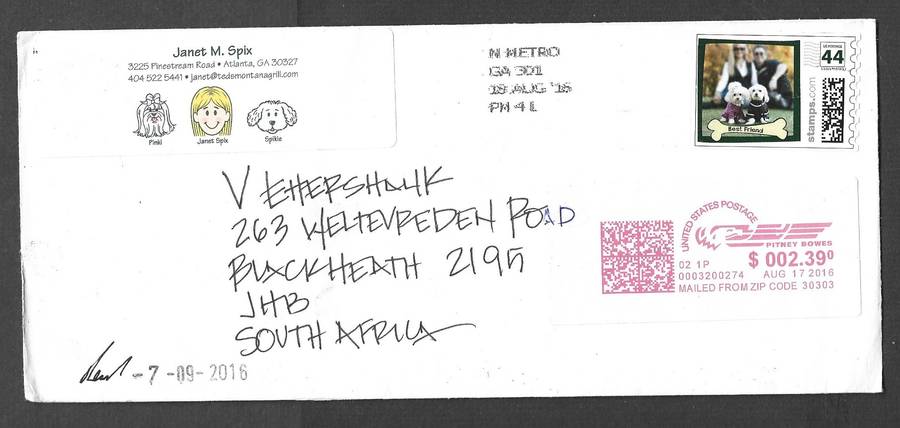 Janet M. Spix
3225 Pinestream Road • Atlanta, GA 30327
404 522 5441 • janet@tedsmontanagrill.com
Pinki
Janet Spix
Spikie
N METRO
GA 301
18 AUG '16
PM 4 L
US POSTAGE
44
stamps.com
Best Friend
V EHERSHAUK
263 WELTEVREDEN ROAD
BLACKHEATH 2195
JHB
SOUTH AFRICA
UNITED STATES POSTAGE
PITNEY BOWES
02 1P
$ 002.39⁰
0003200274 AUG 17 2016
MAILED FROM ZIP CODE 30303
-7-09-2016